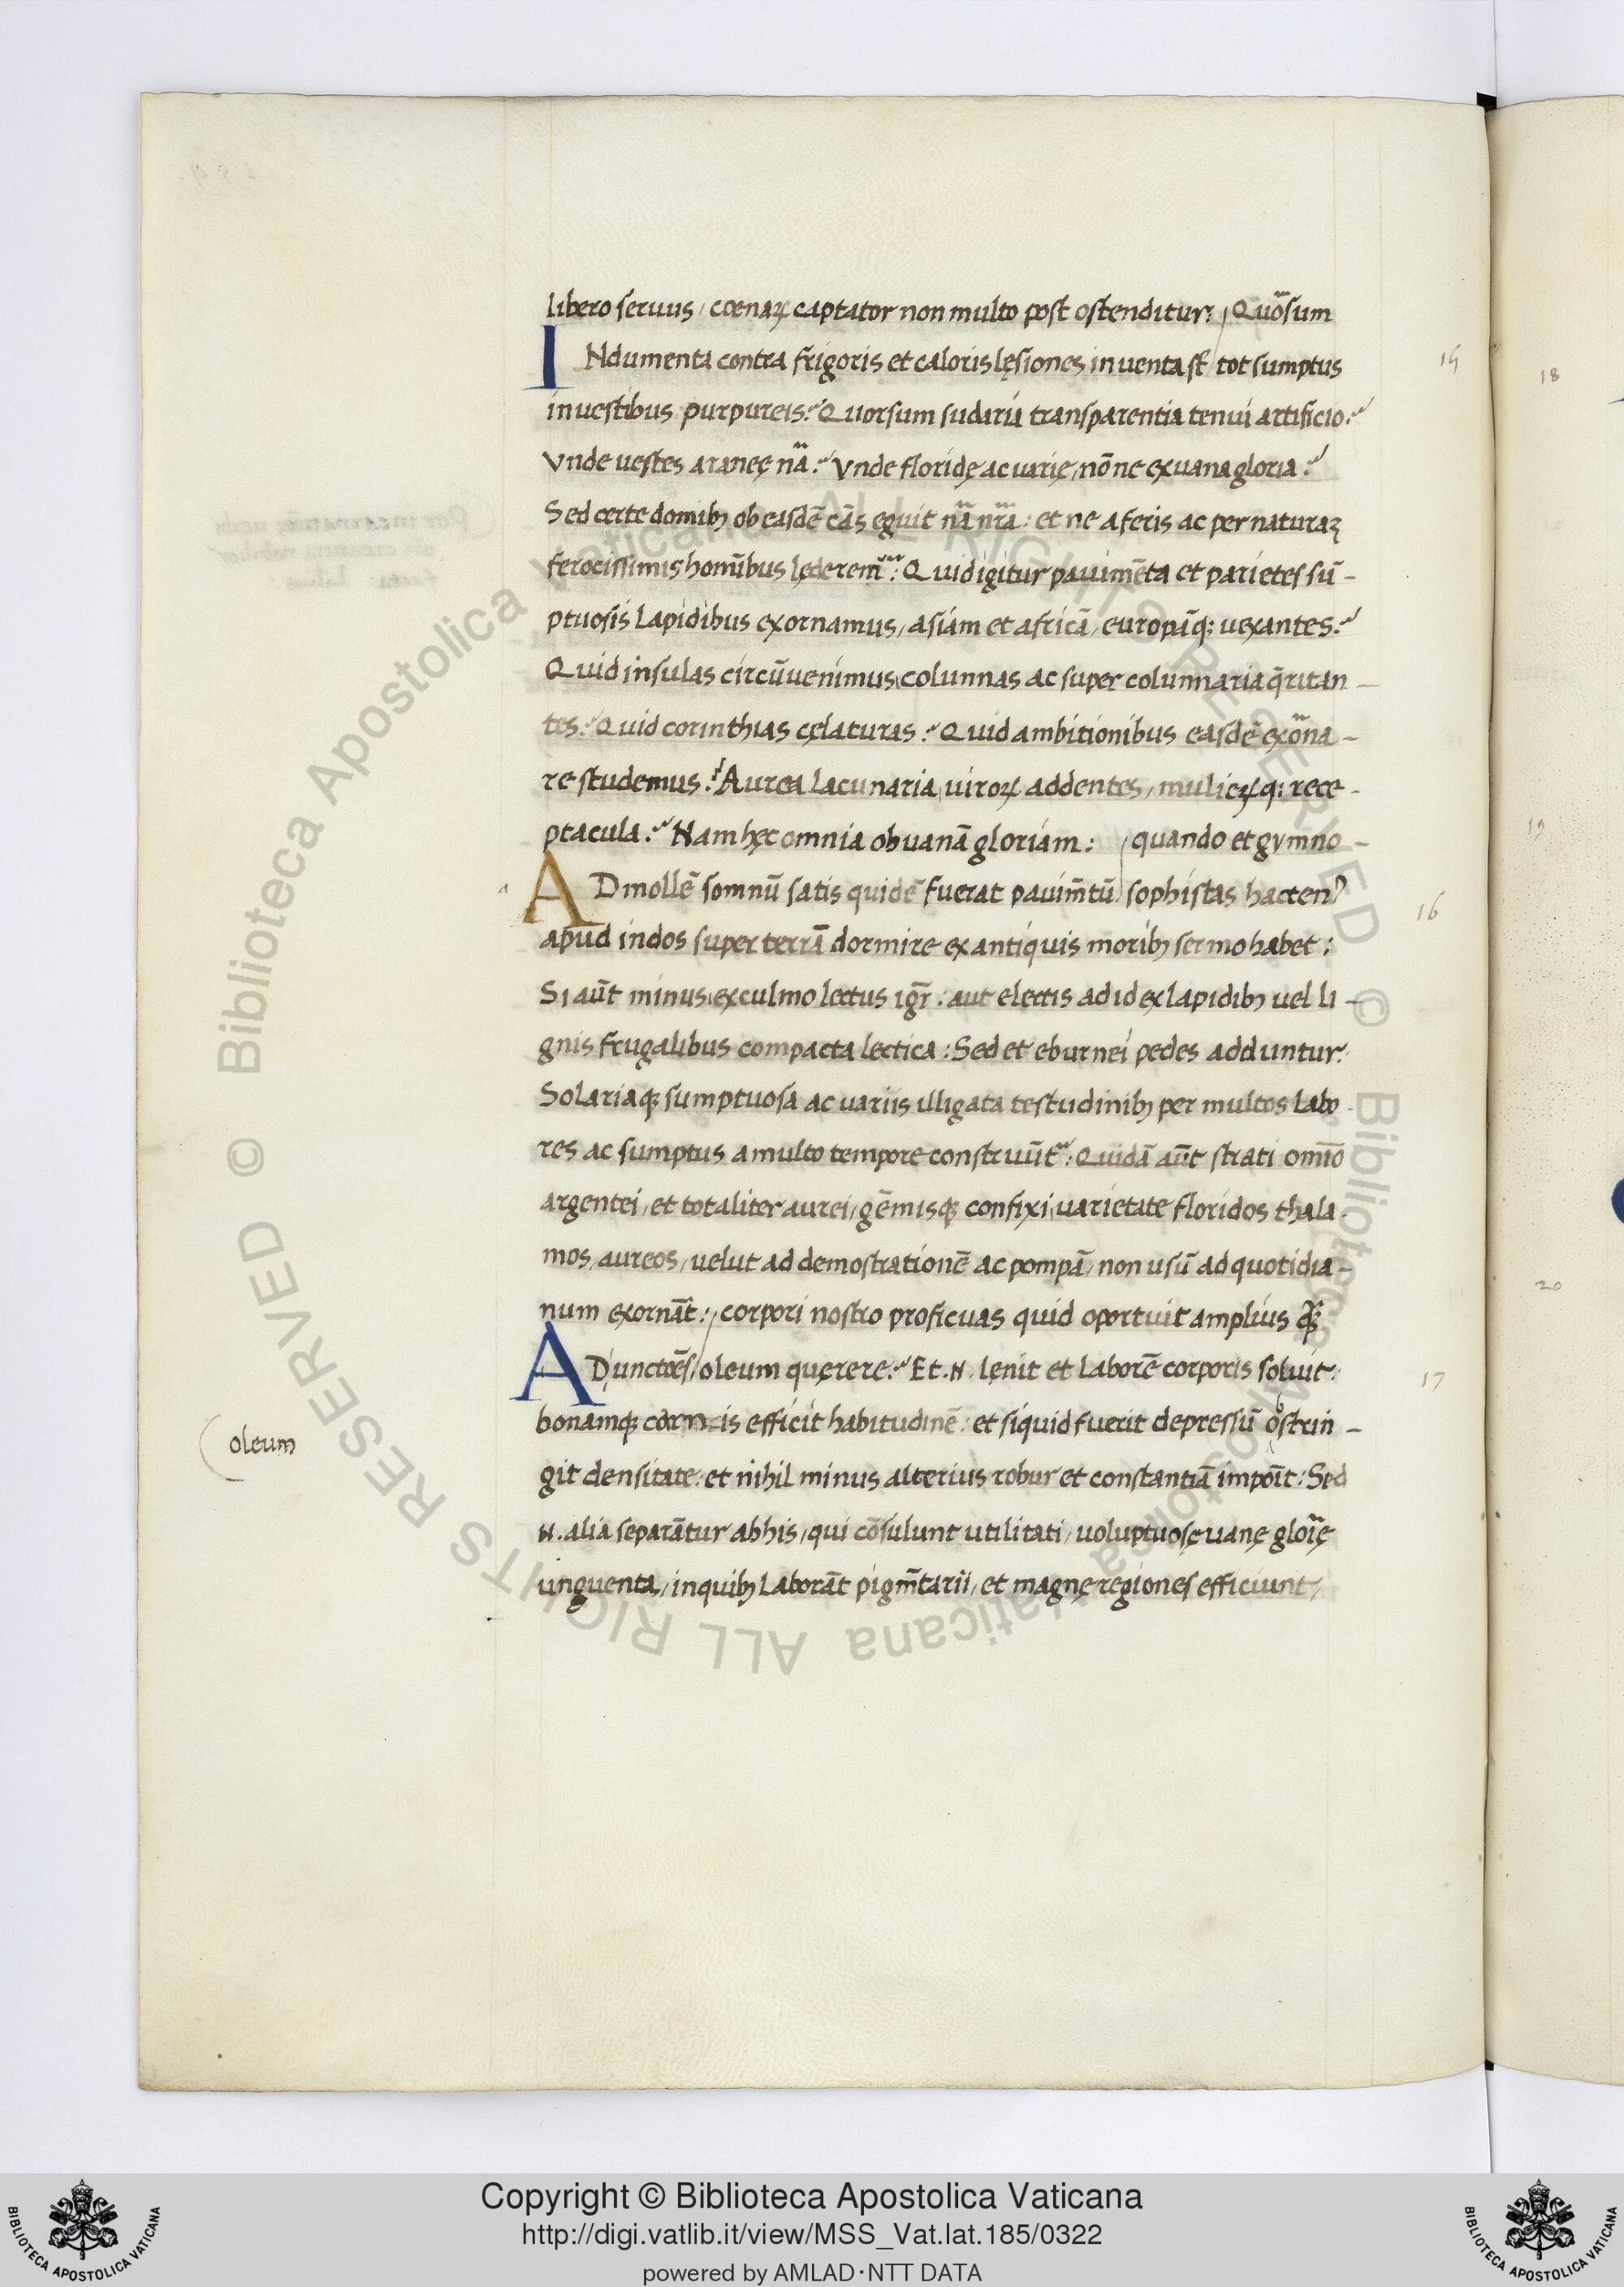 libero seruus, coenaꝝ captator non multo post ostenditur: Quo͛sum
INdumenta contra frigoris et caloris lęsiones inuenta st̄ tot sumptus
in uestibus purpureis? Quorsum sudaria transparentia tenui artificio?
Vnde uestes araneę nã? Vnde floridę ac uarię, nōne ex uana gloria?
Sed certe domibꝫ ob easdē cãs eguit nã nr̃a: et ne a feris ac per naturaꝝ
ferocissimis homībus lęderem̃: Quid igitur pauimēta et parietes sū-
ptuosis lapidibus exornamus, asiam et africā, europāqꝫ uexantes?
Quid insulas circūuenimus, colunnas ac super colunnaria q̄ritan-
tes? Quid corinthias cęlaturas? Quid ambitionibus easdē exo͛na-
re studemus? Aurea lacunaria, uiroꝝ addentes, mulieꝝqꝫ rece-
ptacula? Nam hęc omnia ob uanā gloriam: quando et gymno-
AD mollē somnū satis quidē fuerat pauim̄tū sophistas hacten⁹
apud indos super terrā dormire ex antiquis moribꝫ sermo habet:
Si aūt minus, ex culmo lectus igr̄: aut electis ad id ex lapidibꝫ uel li-
gnis frugalibus compacta lectica: Sed et eburnei pedes adduntur:
Solariaqꝫ sumptuosa ac uariis illigata testudinibꝫ per multos labo-
res ac sumptus a multo tempore construūt̃: Quidā aūt strati omīo
argentei, et totaliter aurei, gēmisqꝫ confixi, uarietate floridos thala-
mos, aureos, uelut ad demostrationē ac pompā, non usū ad quotidia-
num exornāt: corpori nostro proficuas quid oportuit amplius qꝫ̄
AD unctōes oleum quęrere? Et .N. lęnit et laborē corporis soluit:
bonamqꝫ carnis efficit habitudinē: et siquid fuerit depressū obstrin-
git densitate: et nihil minus alterius robur et constantiā impoīt: Sed
N. alia separātur ab his, qui cōsulunt utilitati, uoluptuosę uanę glor̄ię
unguenta, in quibꝫ laborāt pigm̄tarii, et magnę regiones efficiunt,
oleum
15
16
17
18
19
20
Copyright © Biblioteca Apostolica Vaticana
http://digi.vatlib.it/view/MSS_Vat.lat.185/0322
powered by AMLAD·NTT DATA
BIBLIOTECA APOSTOLICA VATICANA
BIBLIOTECA APOSTOLICA VATICANA
© Biblioteca Apostolica Vaticana ALL RIGHTS RESERVED
© Biblioteca Apostolica Vaticana ALL RIGHTS RESERVED